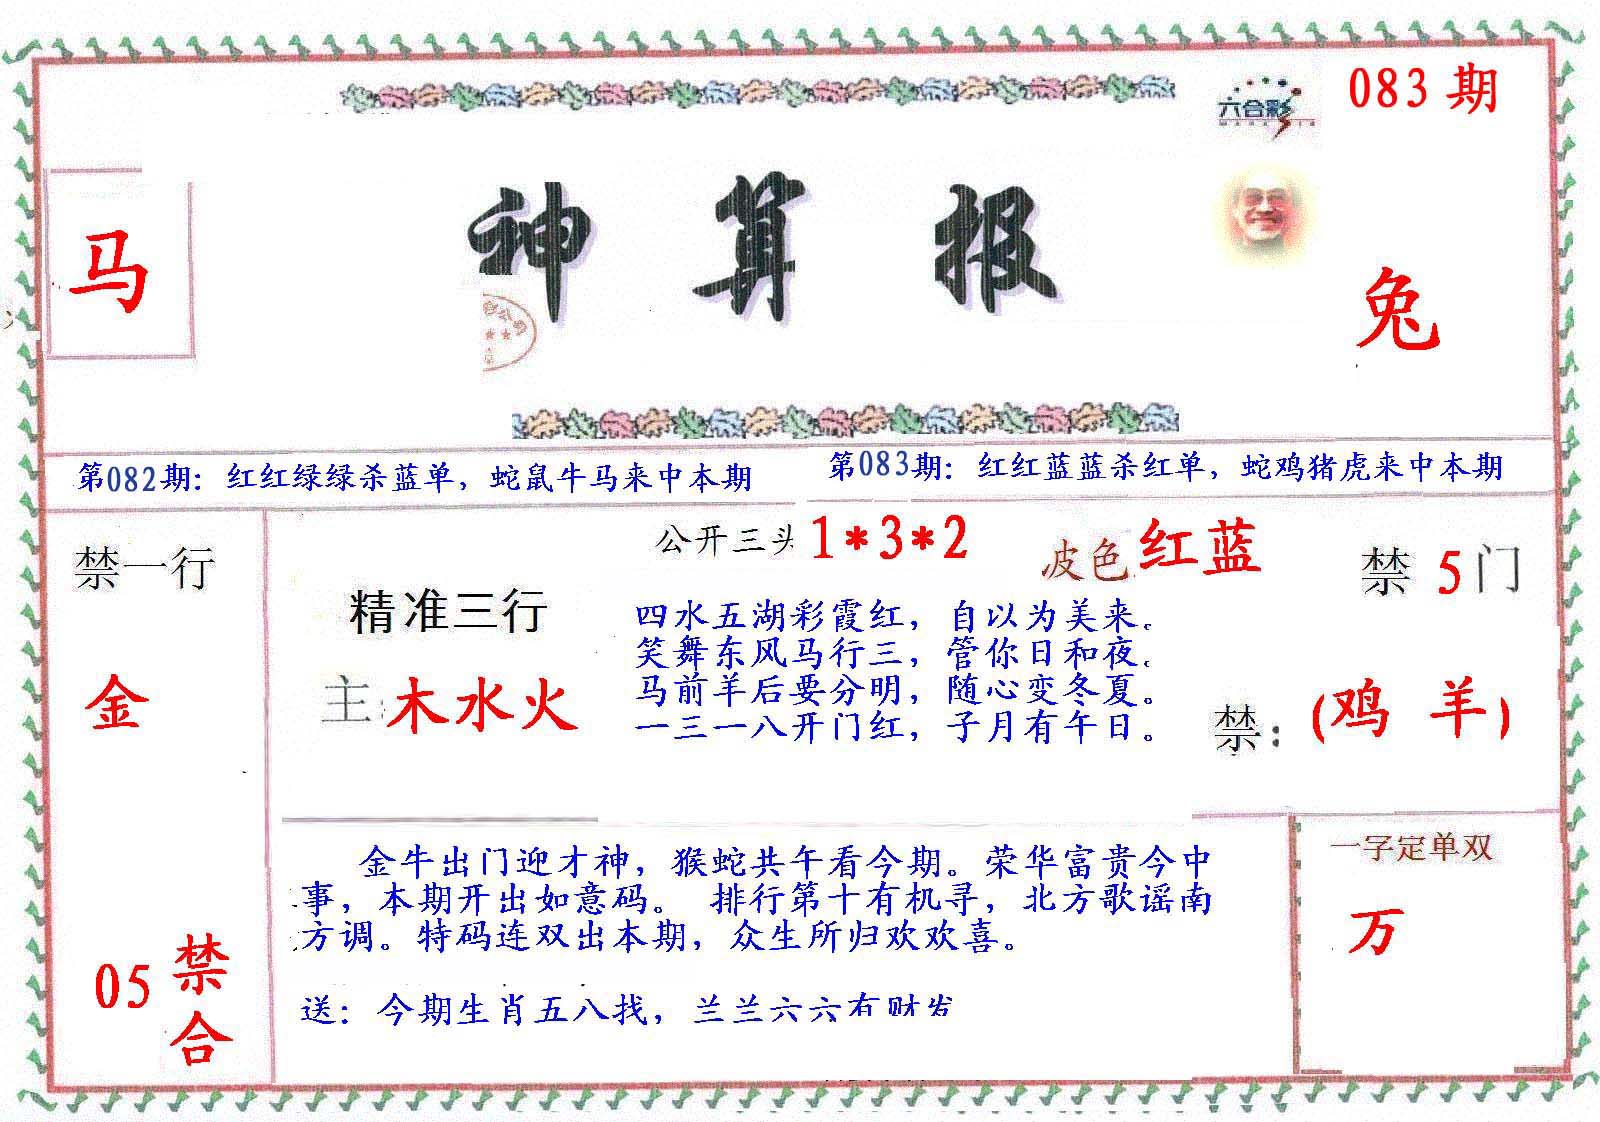 六合彩
083期
马
神算报
兔
第082期：红红绿绿杀蓝单，蛇鼠牛马来中本期
第083期：红红蓝蓝杀红单，蛇鸡猪虎来中本期
禁一行
金
05禁合
精准三行
主:木水火
公开三头1*3*2
皮色:红蓝
四水五湖彩霞红，自以为美来。
笑舞东风马行三，管你日和夜。
马前羊后要分明，随心变冬夏。
一三一八开门红，子月有午日。
禁5门
禁：(鸡 羊)
金牛出门迎才神，猴蛇共午看今期。荣华富贵今中
事，本期开出如意码。 排行第十有机寻，北方歌谣南
方调。特码连双出本期，众生所归欢欢喜。
送：今期生肖五八找，兰兰六六有财发
一字定单双
万